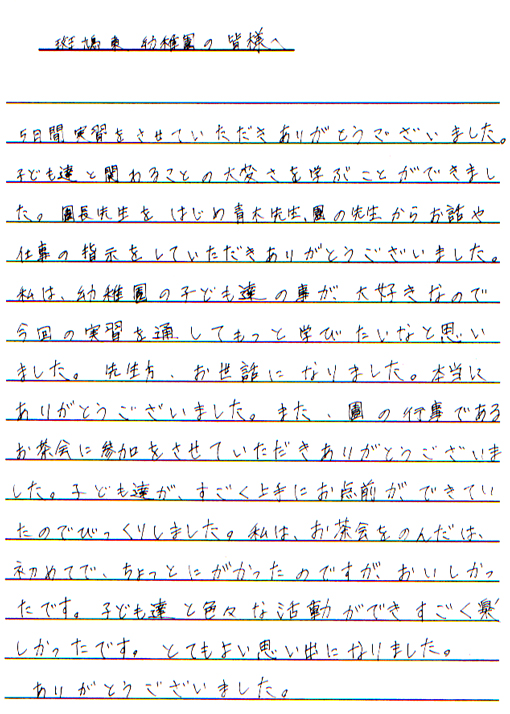 斑鳩東幼稚園の皆様へ
5日間実習をさせていただきありがとうございました。
子ども達と関わることの大変さを学ぶことができまし
た。園長先生をはじめ青木先生、園の先生からお話や
仕事の指示をしていただきありがとうございました。
私は、幼稚園の子ども達の事が、大好きなので
今回の実習を通してもっと学びたいなと思い
ました。先生方、お世話になりました。本当に
ありがとうございました。また、園の行事である
お茶会に参加をさせていただきありがとうございま
した。子ども達が、すごく上手にお点前ができてい
たのでびっくりしました。私は、お茶会をのんだは、
初めてで、ちょっとにがかったのですが、おいしかっ
たです。子ども達と色々な活動ができすごく楽
しかったです。とてもよい思い出になりました。
ありがとうございました。